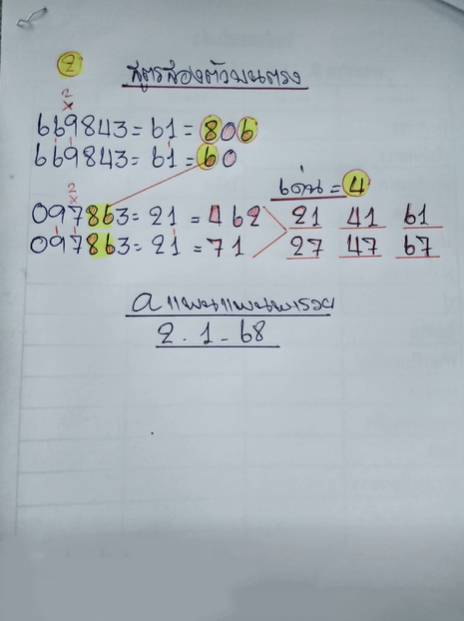 2
สูตรสองตัวบนตรง
2
x
669843 = 61 = 806
669843 = 61 = 60
เด่น = 4
2
x
097863 = 21 = 462 21 41 61
097863 = 21 = 71 27 47 67
2.1-68